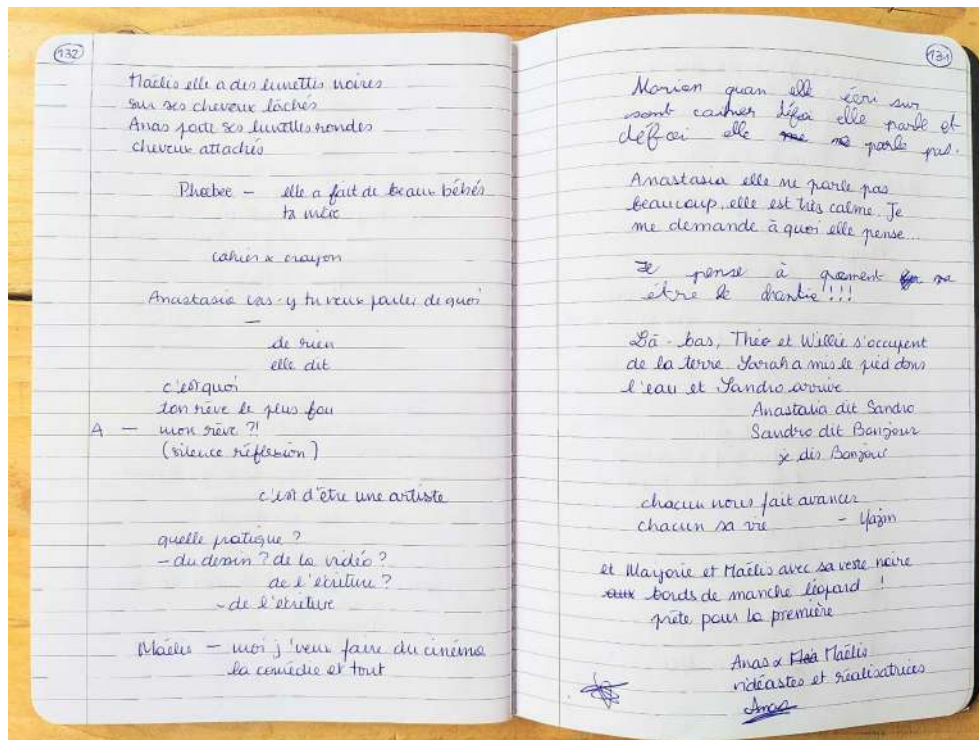 132
Maëlis elle a des lunettes noires
sur ses cheveux lâchés
Anas porte ses lunettes rondes
cheveux attachés
Phoebee - elle a fait de beaux bébés
ta mère
cahier & crayon
Anastasia vas-y tu veux parler de quoi
-
de rien
elle dit
c'est quoi
ton rêve le plus fou
A - mon rêve ?!
(silence réflexion)
c'est d'être une artiste
quelle pratique ?
- du dessin ? de la vidéo ?
de l'écriture ?
- de l'écriture
Maëlis - moi j'veux faire du cinéma
la comédie et tout
131
Morien quan elle écri sur
sont cailler défoi elle parle et
défoi elle ne parle pas.
Anastasia elle ne parle pas
beaucoup, elle est très calme. Je
me demande à quoi elle pense...
Je pense à
être le !!!
Là-bas, Théo et Willie s'occupent
de la terre. Sarah a mis le pied dans
l'eau et Sandro arrive
Anastasia dit Sandro
Sandro dit Bonjour
je dis Bonjour
chacun nous fait avancer
chacun sa vie - Yazin
et Marjorie et Maëlis avec sa veste noire
aux bords de manche léopard !
prête pour la première
Anas & Maëlis
vidéastes et réalisatrices
Anas